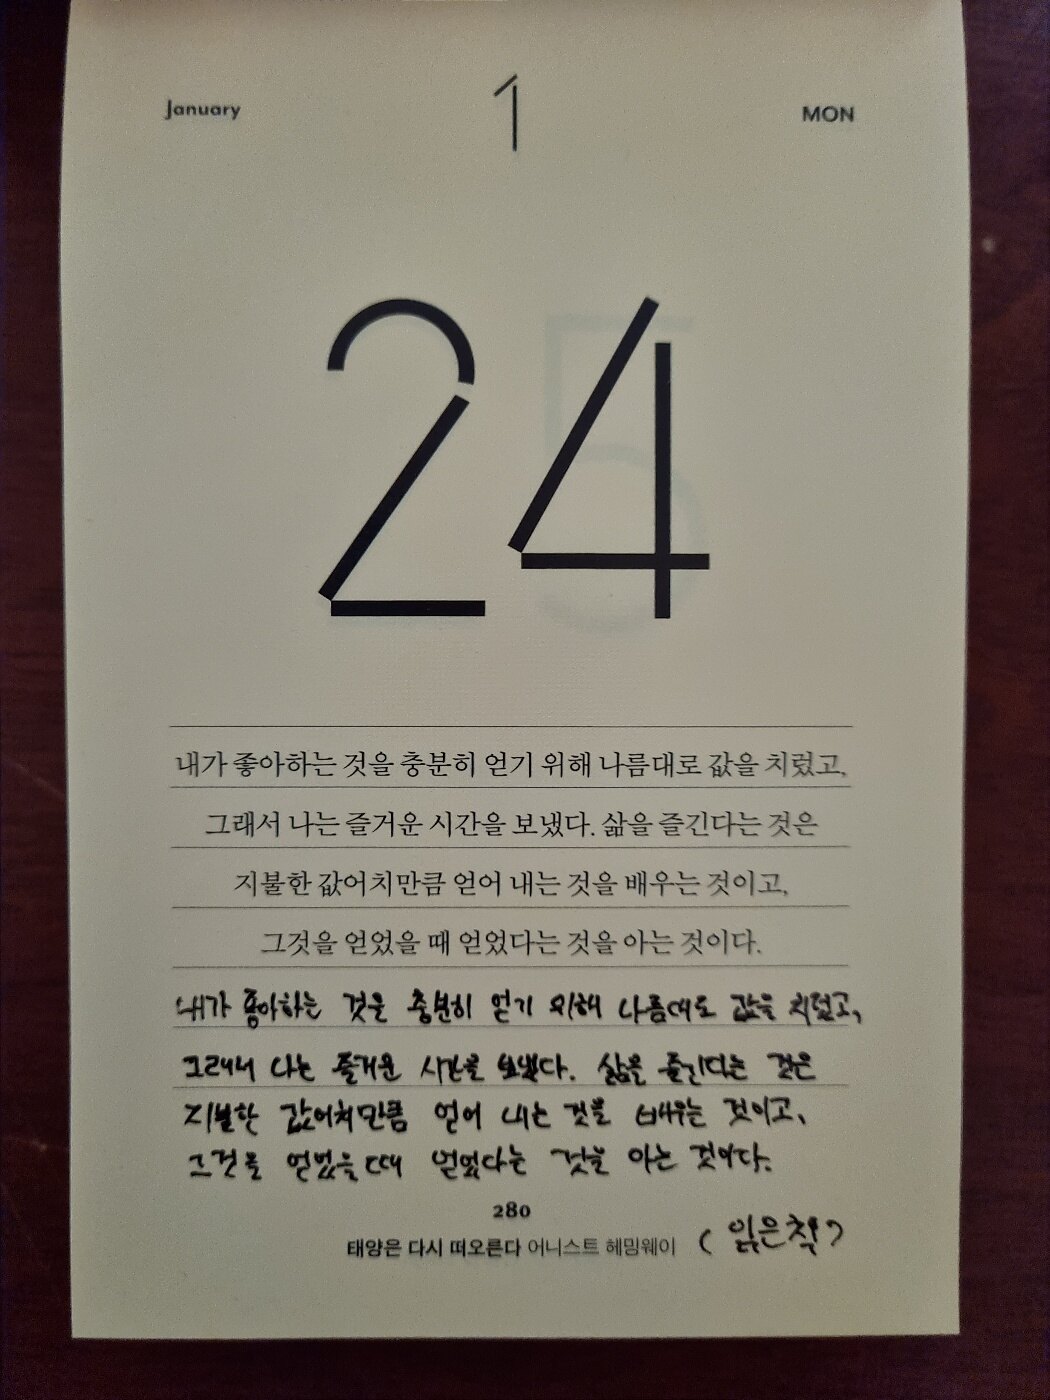 January 1 MON
24
내가 좋아하는 것을 충분히 얻기 위해 나름대로 값을 치렀고,
그래서 나는 즐거운 시간을 보냈다. 삶을 즐긴다는 것은
지불한 값어치만큼 얻어 내는 것을 배우는 것이고,
그것을 얻었을 때 얻었다는 것을 아는 것이다.
내가 좋아하는 것을 충분히 얻기 위해 나름대로 값을 치렀고,
그래서 나는 즐거운 시간을 보냈다. 삶을 즐긴다는 것은
지불한 값어치만큼 얻어 내는 것을 배우는 것이고,
그것을 얻었을 때 얻었다는 것을 아는 것이다.
280
태양은 다시 떠오른다 어니스트 헤밍웨이 (읽은책)